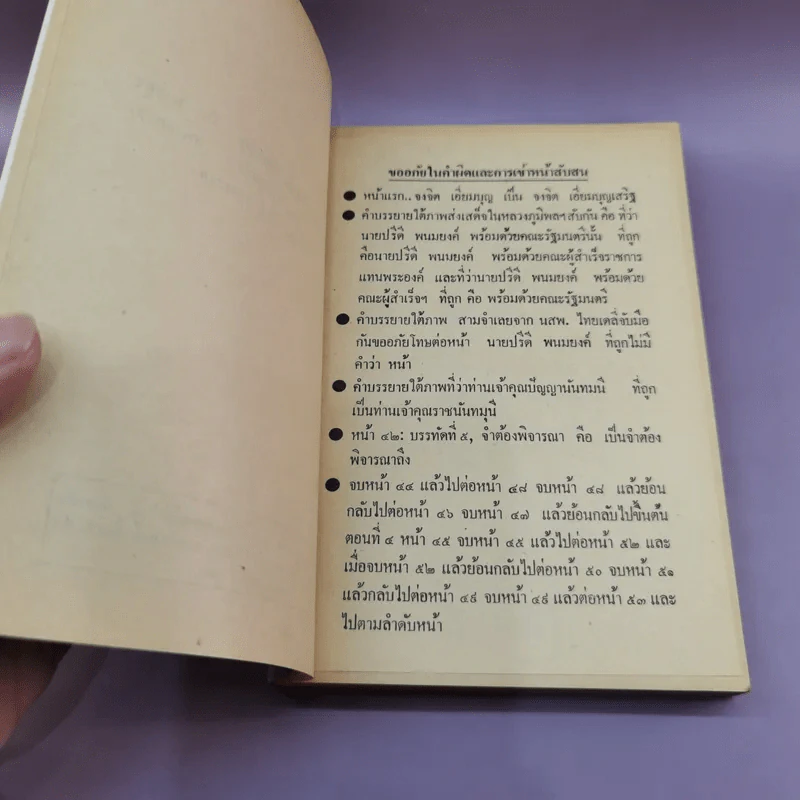 ขออภัยในคำผิดและการเข้าหน้าสับสน
● หน้าแรก.. จงจิต เอี่ยมบุญ เป็น จงจิต เอี่ยมบุญเสริฐ
● คำบรรยายใต้ภาพส่งเสด็จในหลวงภูมิพลฯ สับกัน คือ ที่ว่า
นายปรีดี พนมยงค์ พร้อมด้วยคณะรัฐมนตรีนั้น ที่ถูก
คือนายปรีดี พนมยงค์ พร้อมด้วยคณะผู้สำเร็จราชการ
แทนพระองค์ และที่ว่านายปรีดี พนมยงค์ พร้อมด้วย
คณะผู้สำเร็จฯ ที่ถูก คือ พร้อมด้วยคณะรัฐมนตรี
● คำบรรยายใต้ภาพ สามจำเลยจาก นสพ. ไทยเดลี่จับมือ
กันขออภัยโทษต่อหน้า นายปรีดี พนมยงค์ ที่ถูกไม่มี
คำว่า หน้า
● คำบรรยายใต้ภาพที่ว่าท่านเจ้าคุณปัญญานันทมุนี ที่ถูก
เป็นท่านเจ้าคุณราชนันทมุนี
● หน้า ๔๒: บรรทัดที่ ๕, จำต้องพิจารณา คือ เป็นจำต้อง
พิจารณาถึง
● จบหน้า ๔๔ แล้วไปต่อหน้า ๔๘ จบหน้า ๔๘ แล้วย้อน
กลับไปต่อหน้า ๔๖ จบหน้า ๔๗ แล้วย้อนกลับไปขึ้นต้น
ตอนที่ ๔ หน้า ๔๕ จบหน้า ๔๕ แล้วไปต่อหน้า ๕๒ และ
เมื่อจบหน้า ๕๒ แล้วย้อนกลับไปต่อหน้า ๕๐ จบหน้า ๕๑
แล้วกลับไปต่อหน้า ๔๙ จบหน้า ๔๙ แล้วต่อหน้า ๕๓ และ
ไปตามลำดับหน้า